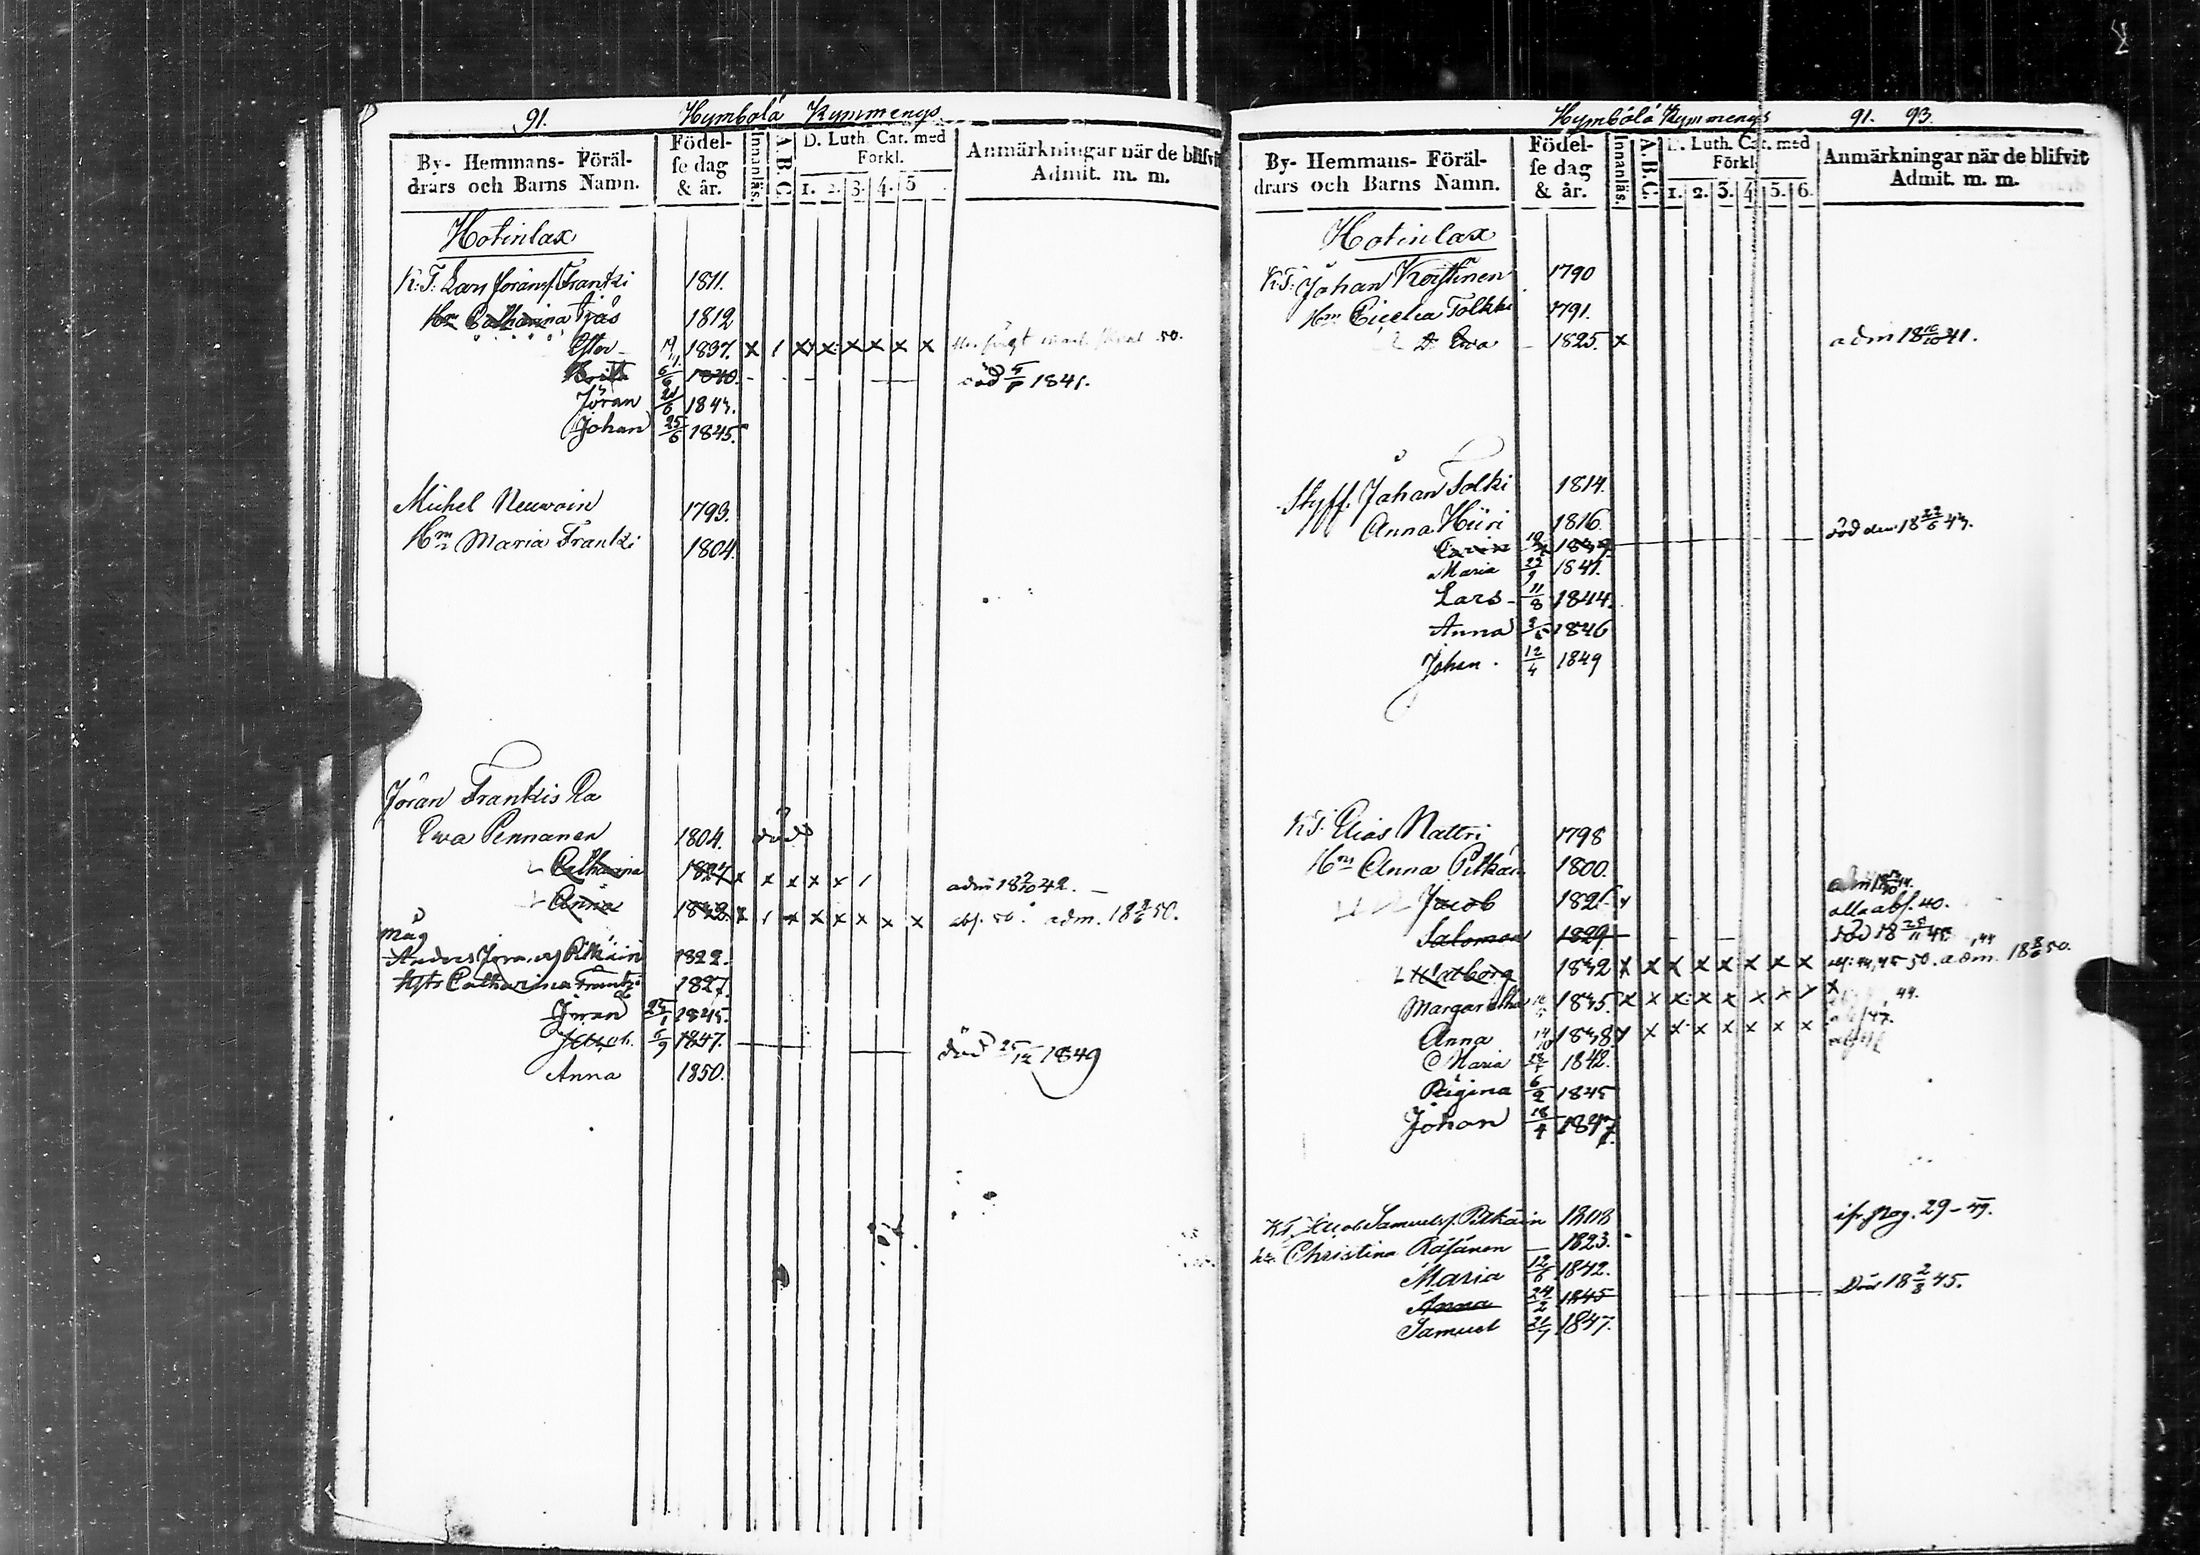 91. Hymbolä Kymmenys
By- Hemmans- Föräldrars och Barns Namn. Födelse dag & år. Innanläs. A.B.C. D. Luth. Cat. med Förkl. 1. 2. 3. 4. 5 Anmärkningar när de blifvit Admit. m. m.
Hotinlax
K.T. Lars Göransf. Frantzi 1811.
Hn Catharina 1812
Ester 19/11 1837. x / x x x x x x 50.
Brita 6/6 1840. död 1841.
Jöran 21/6 1843.
Johan 25/6 1845.
Michel Neuvoin 1793.
Hn Maria Frantzi 1804.
Jöran Frantzis Ea
Ewa Pennanen 1804. död
Catharina 1827 x x x x x / adm 18 42.
Anna 1832 x / x x x x x x abs. 50. adm. 18 50.
måg
Anders Pitkäin 1822.
Hstr Catharina Frantzi 1827.
Jöran 25/1 1845.
Jacob. 5/9 1847. död 25/12 1849
Anna 1850.
Hymbölä Kymmenys 91. 93.
By- Hemmans- Föräldrars och Barns Namn. Födelse dag & år. Innanläs. A.B.C. D. Luth. Cat. med Förkl. 1. 2. 3. 4. 5. 6. Anmärkningar när de blifvit Admit. m. m.
Hotinlax
K.T. Johan Koistinen 1790
Hn Cicelia Tolkki 1791.
D. Ewa 1825. x adm 18 10/10 41.
Styff. Johan Tolki 1814.
Anna Hiiri 1816.
Carin 1839 död den 18 22/6 43.
Maria 22/9 1841.
Lars 11/8 1844.
Anna 1846
Johan. 12/4 1849
K.T. Elias Nattri 1798
Hn Anna Pitkän 1800.
Jacob alla abs. 40.
Salomon 1829 död 18 25/11 45.
Walborg 1832 x x x x x x x x adm. 18 8/6 50.
Margaretha 1835. x x x x x x x / x 44.
Anna 14/10 1838. x x x x x x x 47.
Maria 1842.
Regina 6/2 1845
Johan 18/4 1847.
K.T. Jacob Samuelsf. Pitkäin ifr. pag. 29-47.
Hn Christina Räsänen 1823.
Maria 12/6 1842.
Anna 24/2 1845 Död 18 2/8 45.
Samuel 21/7 1847.